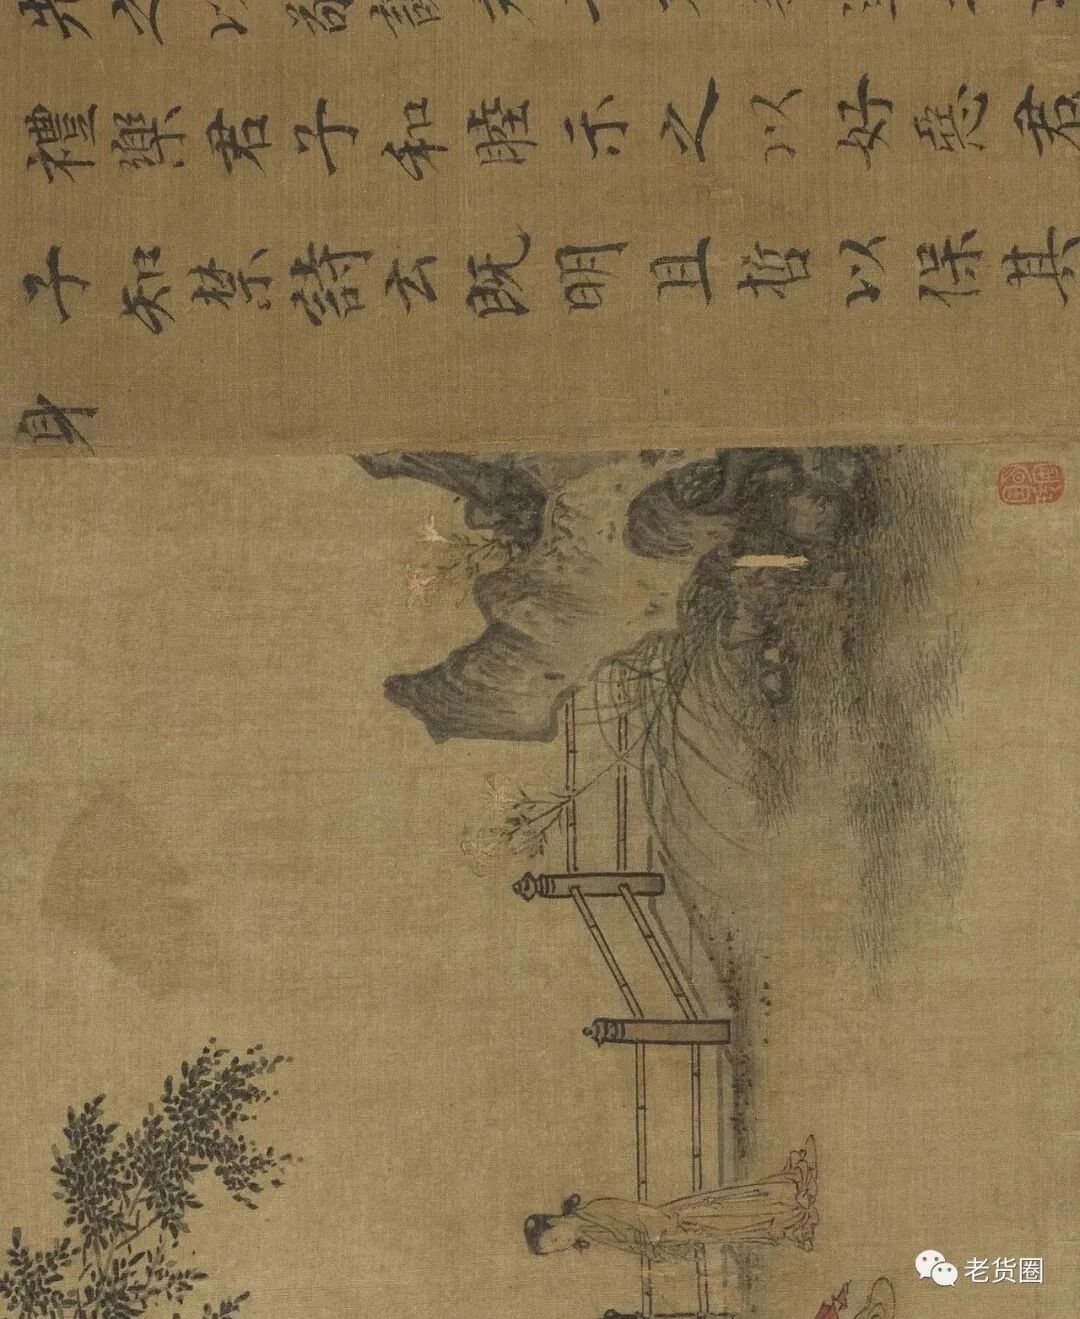 先之以
禮樂君子和睦示之以好惡君
子知禁詩云既明且哲以保其
身
老货圈